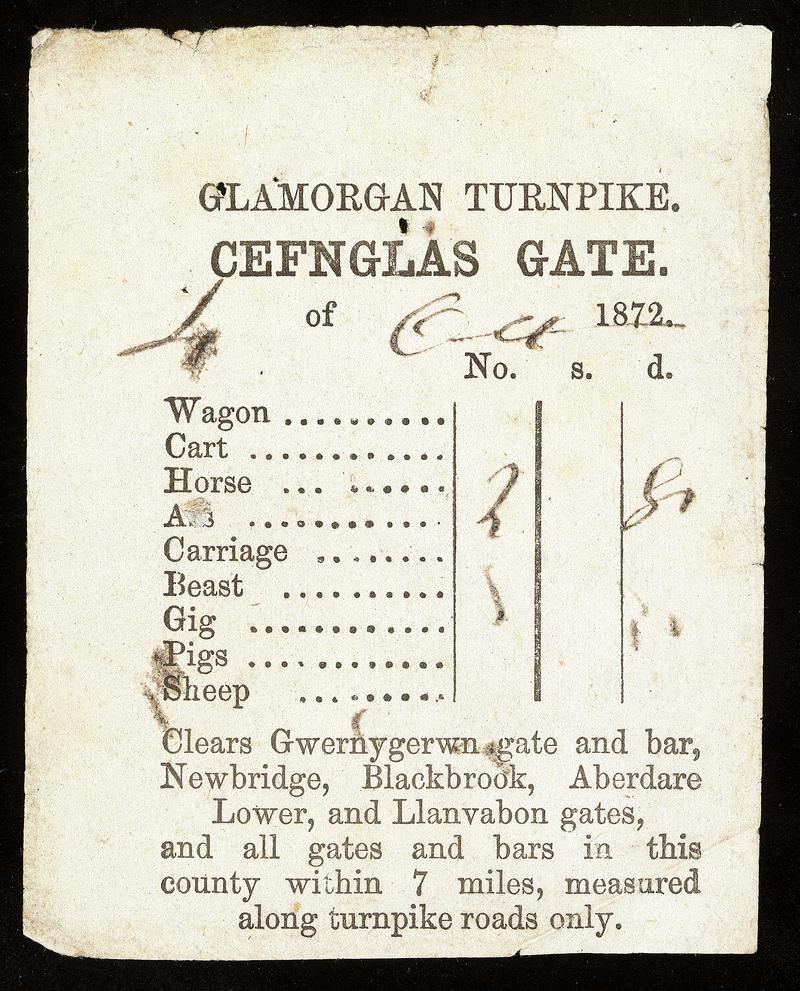 GLAMORGAN TURNPIKE.
CEFNGLAS GATE.
of Oct 1872.
No. s. d.
Wagon ............
Cart ............
Horse ... ....... 2
Ass ............
Carriage ........
Beast ..........
Gig ............
Pigs ............
Sheep .........
Clears Gwernygerwn gate and bar,
Newbridge, Blackbrook, Aberdare
Lower, and Llanvabon gates,
and all gates and bars in this
county within 7 miles, measured
along turnpike roads only.